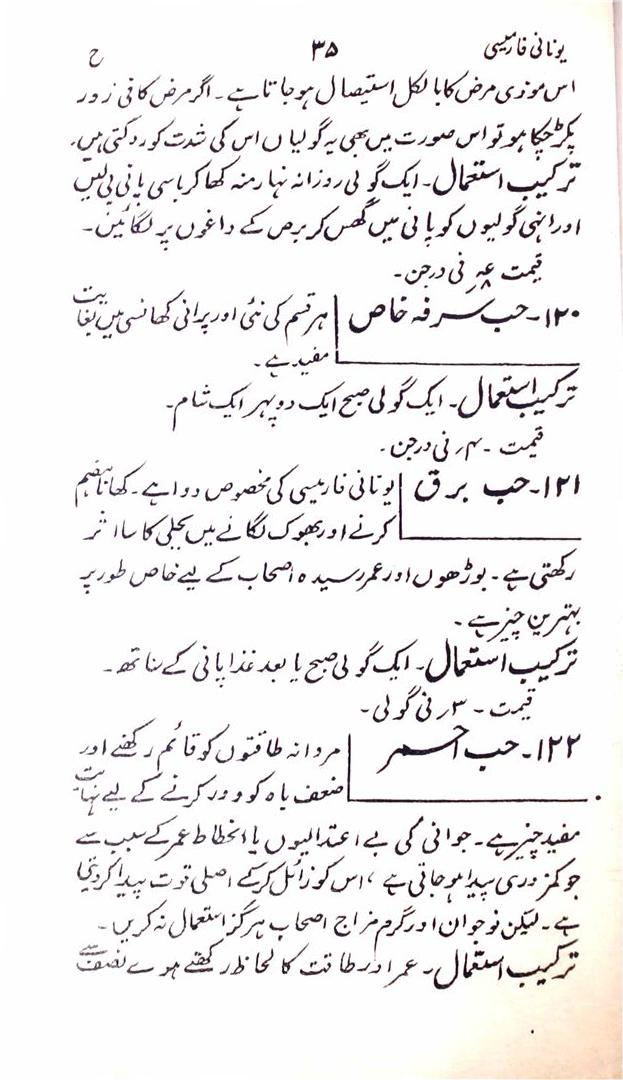 یونانی فارمیسی ۳۵ ح
اس موذی مرض کا بالکل استیصال ہو جاتا ہے۔ اگر مرض کافی زور
پکڑ چکا ہو تو اس صورت میں بھی یہ گولیاں اس کی شدت کو روکتی ہیں۔
ترکیب استعمال۔ ایک گولی روزانہ نہار منہ کھا کر باسی پانی پی لیں
اور انہی گولیوں کو پانی میں گھس کر برص کے داغوں پر لگائیں۔
قیمت فی درجن۔
۱۲۰۔ حب سرفہ خاص ہر قسم کی نئی اور پرانی کھانسی میں بغایت
مفید ہے۔
ترکیب استعمال۔ ایک گولی صبح ایک دوپہر ایک شام۔
قیمت ۔ ۴؍ فی درجن۔
۱۲۱۔ حب برق یونانی فارمیسی کی مخصوص دوا ہے۔ کھانا ہضم
کرنے اور بھوک لگانے میں بجلی کا سا اثر
رکھتی ہے۔ بوڑھوں اور عمر رسیدہ اصحاب کے لیے خاص طور پر
بہترین چیز ہے۔
ترکیب استعمال۔ ایک گولی صبح یا بعد غذا پانی کے ساتھ۔
قیمت ۔ ۳؍ فی گولی۔
۱۲۲۔ حب احمر مردانہ طاقتوں کو قائم رکھنے اور
ضعف باہ کو دور کرنے کے لیے نہایت
مفید چیز ہے۔ جوانی کی بے اعتدالیوں یا انحطاط عمر کے سبب سے
جو کمزوری پیدا ہو جاتی ہے، اس کو زائل کر کے اصلی قوت پیدا کر دیتی
ہے۔ لیکن نوجوان اور گرم مزاج اصحاب ہرگز استعمال نہ کریں۔
ترکیب استعمال۔ عمر اور طاقت کا لحاظ رکھتے ہوے نصف سے